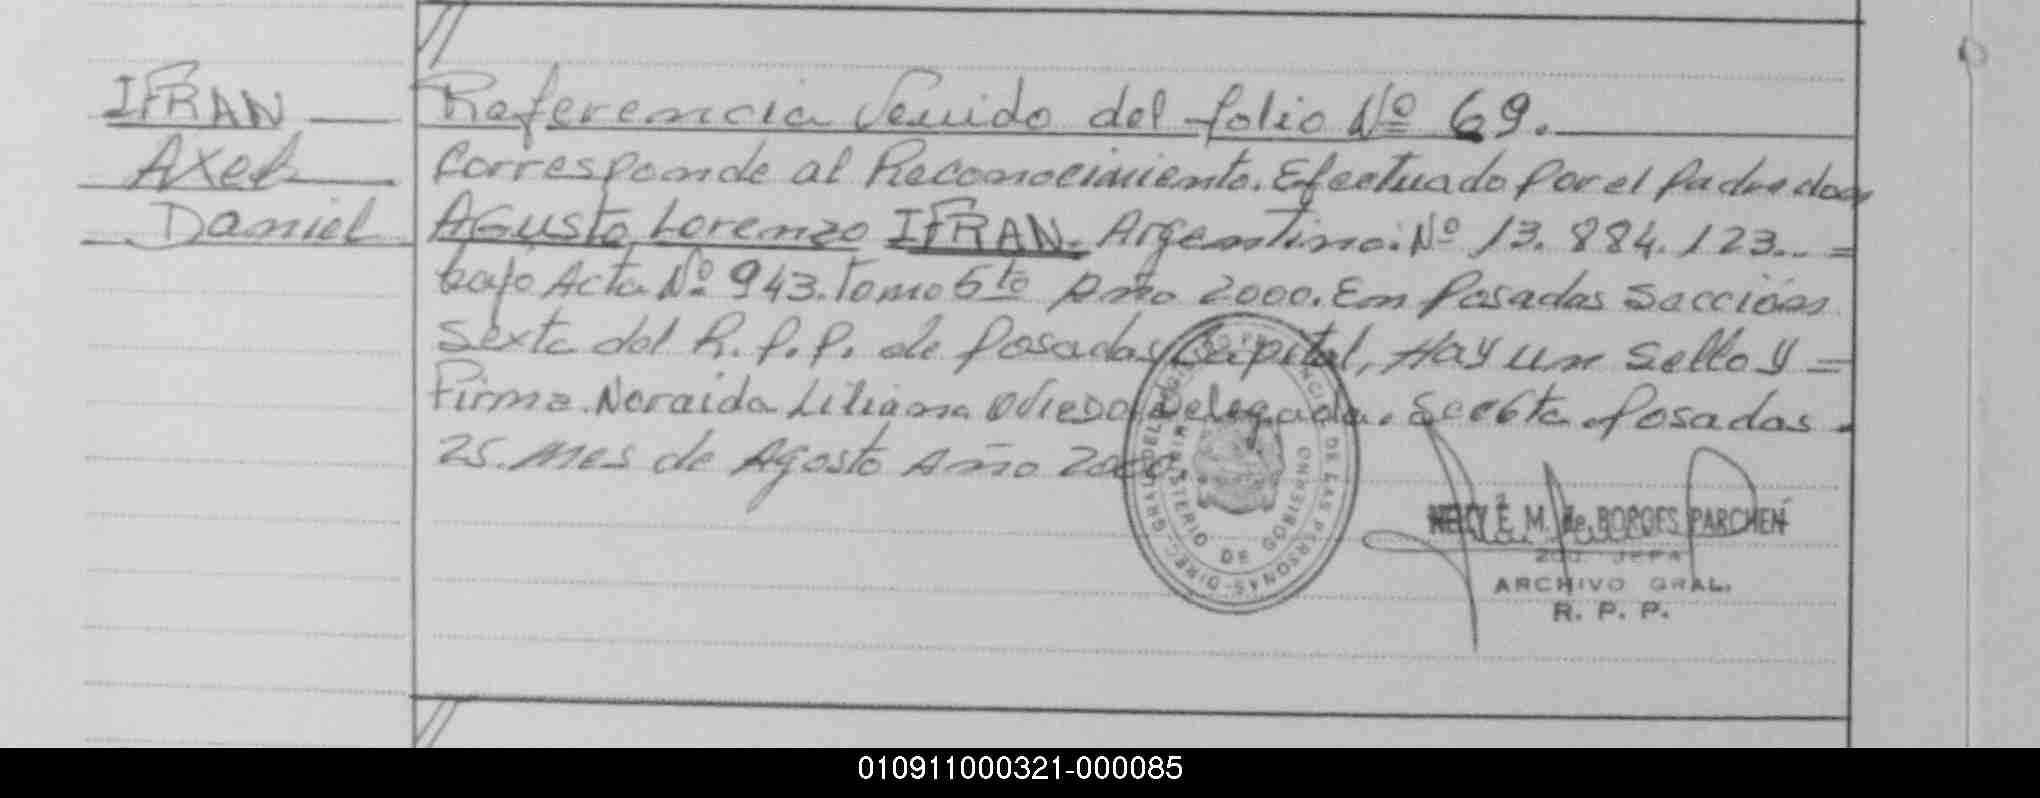 IFRAN
Axel
Daniel
Referencia Venido del folio Nº 69.
Corresponde al Reconocimiento. Efectuado por el padre don
AGusto Lorenzo IFRAN. Argentino. Nº 13.884.123.. =
bajo Acta Nº 943. Tomo 5to Año 2000. En Posadas Sacción
Sexta del R.P.P. de Posadas Capital, Hay un Sello y =
Firma. Noraida Liliana Oviedo Delegada. Sec 6ta. Posadas.
25. Mes de Agosto Año 2000.
DIREC. GRAL. DEL REGISTRO PROVINCIAL DE LAS PERSONAS
MINISTERIO DE GOBIERNO
E. M. de BORGES PARCHEN
2DO. JEFA
ARCHIVO GRAL.
R. P. P.
010911000321-000085